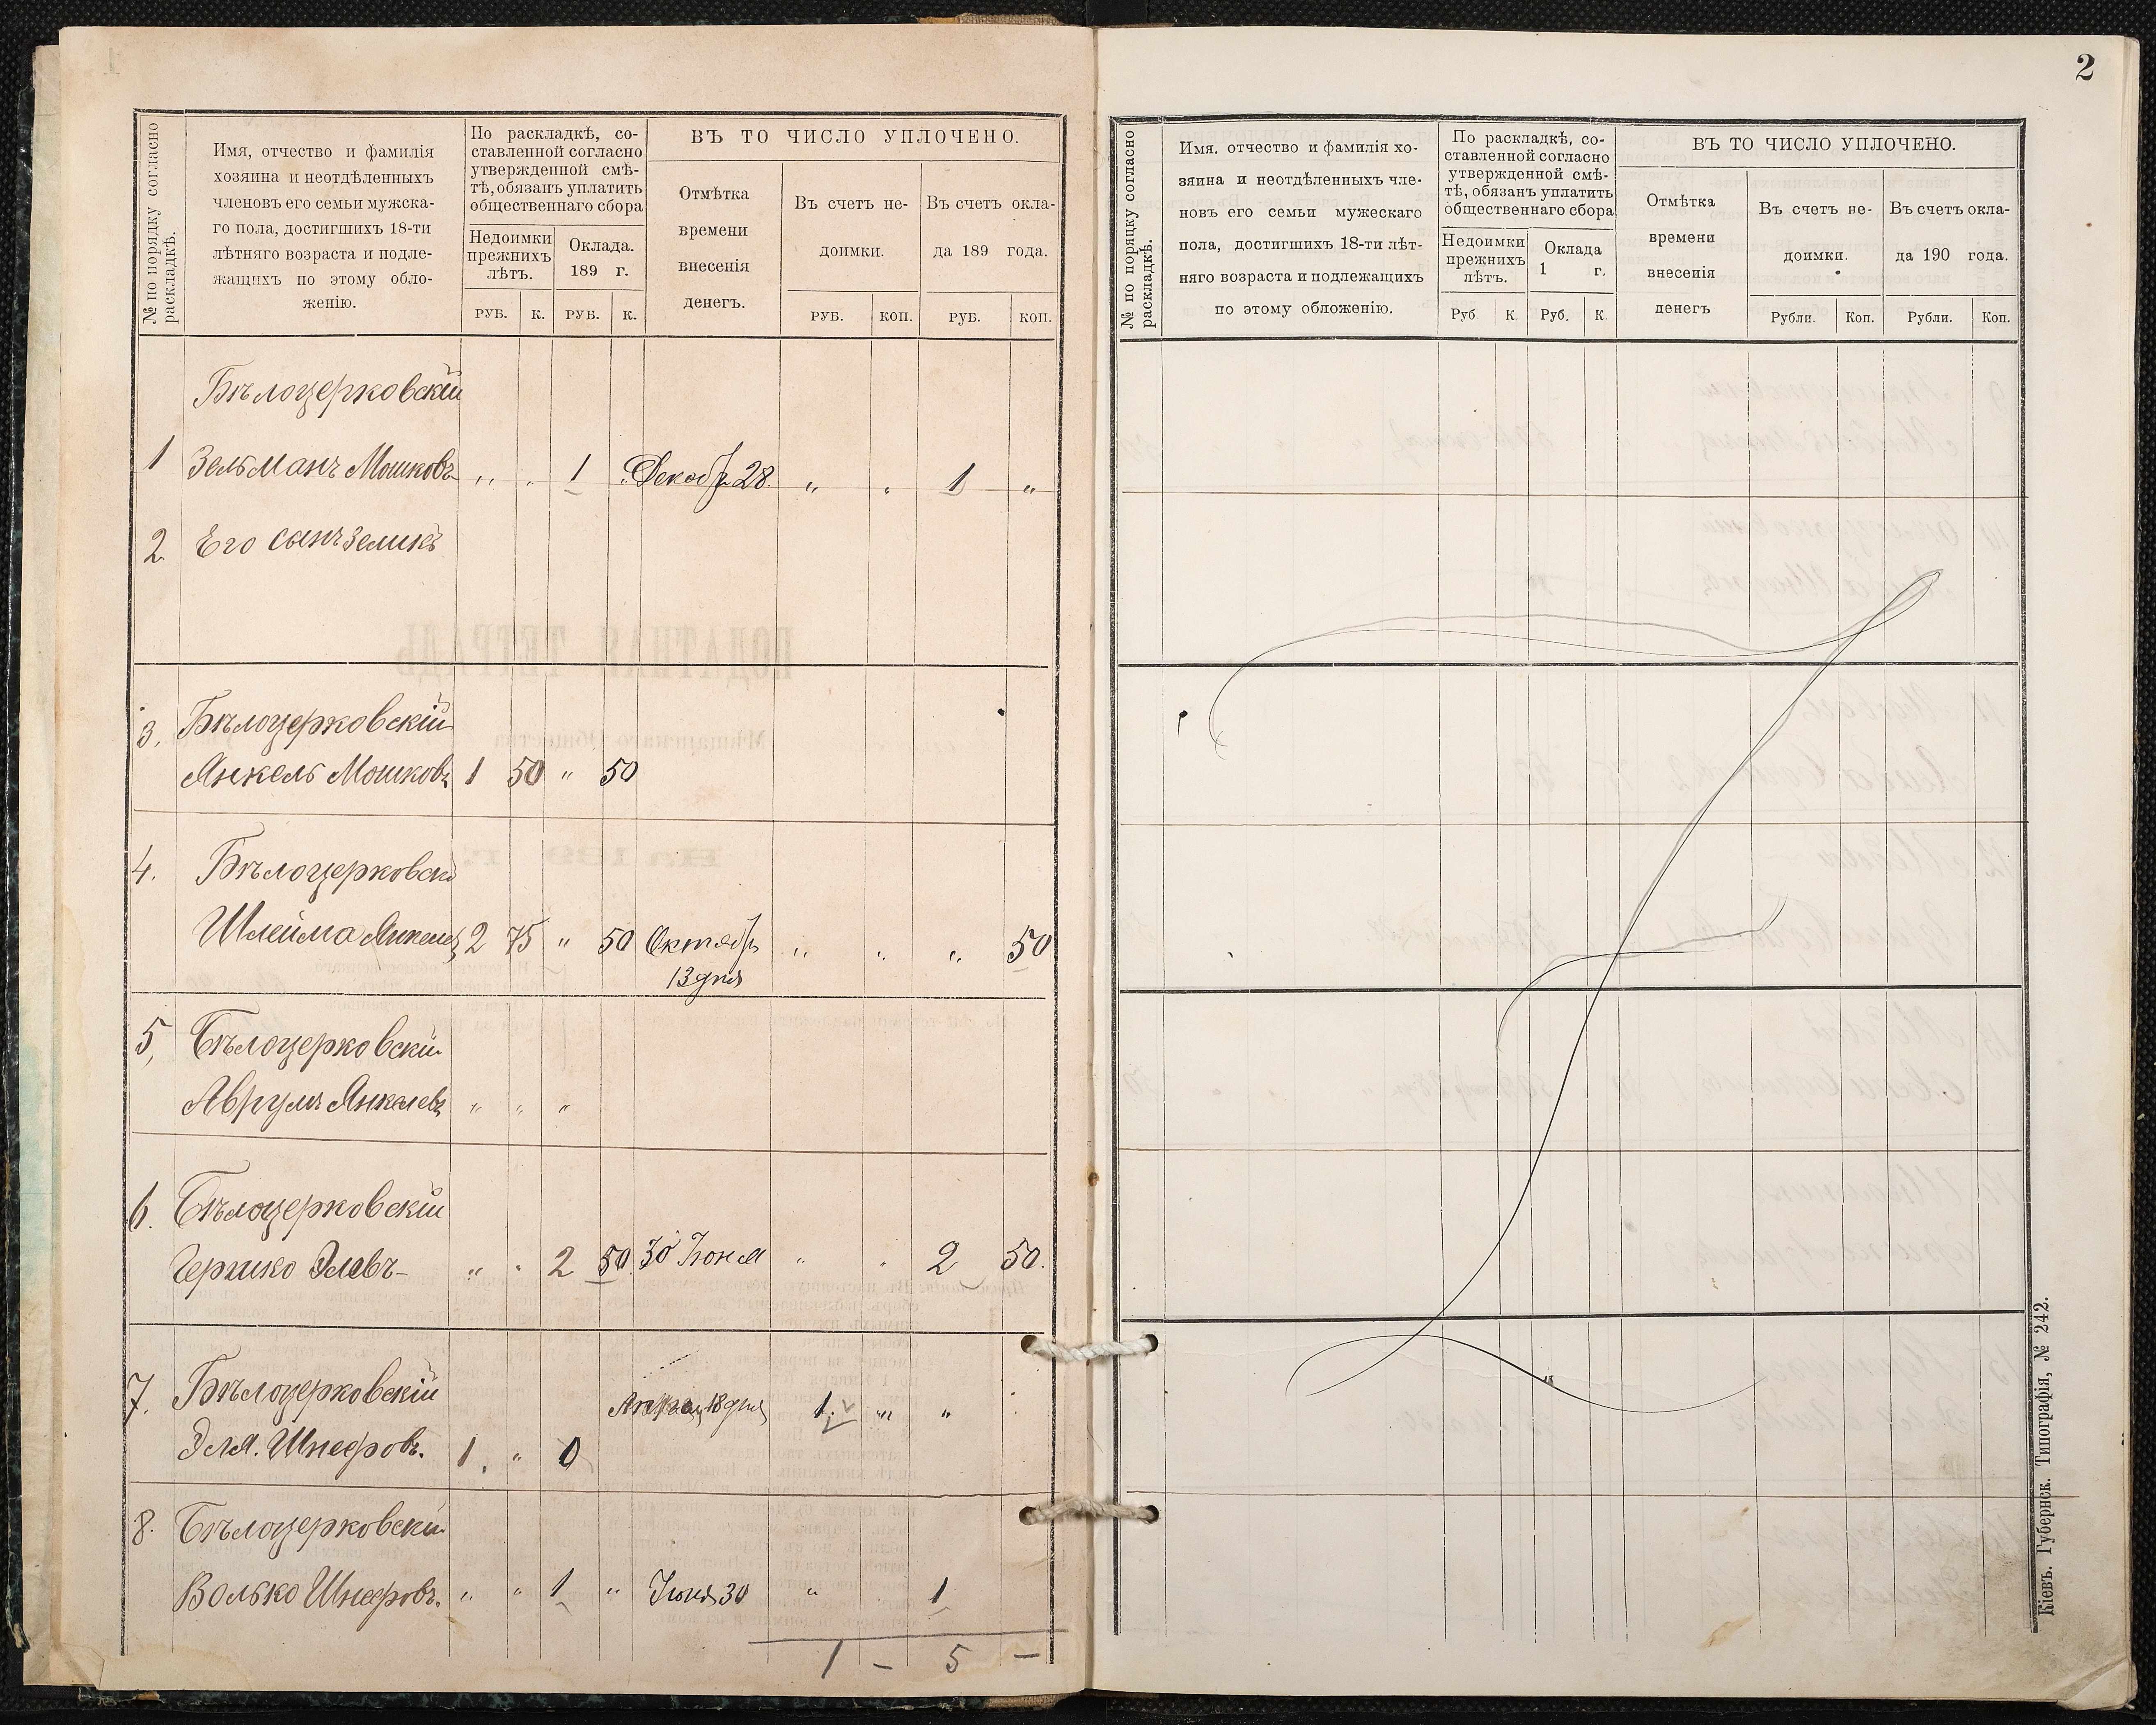 № по порядку согласно
раскладкѣ.
Имя, отчество и фамилія
хозяина и неотдѣленныхъ
членовъ его семьи мужска-
го пола, достигшихъ 18-ти
лѣтняго возраста и подле-
жащихъ по этому обло-
женію.
По раскладкѣ, со-
ставленной согласно
утвержденной смѣ-
тѣ, обязанъ уплатить
общественнаго сбора
Недоимки
прежнихъ
лѣтъ.
Оклада.
189 г.
ВЪ ТО ЧИСЛО УПЛОЧЕНО.
Отмѣтка
времени
внесенія
денегъ.
Въ счетъ не-
доимки.
Въ счетъ окла-
да 189 года.
РУБ. К. РУБ. К. РУБ. КОП. РУБ. КОП.
Бѣлоцерковскій
1 Зельманъ Мошковъ „ „ 1 „ Декабр 28. „ „ 1 „
2. Его сынъ Зеликъ
3. Бѣлоцерковскій
Янкель Мошковъ 1 50 „ 50
4. Бѣлоцерковскі
Шлейма Янкелев 2 75 „ 50 Октябр „ „ „ 50
13 дня
5, Бѣлоцерковскій
Аврумъ Янкелевъ „ „ „
6. Бѣлоцерковскій
Гершко Элевъ „ „ 2 50 30 Іюня „ „ 2 50.
7. Бѣлоцерковскій
18 дня 1. „ „
Эля. Шнееровъ. 1. „ 0
8. Бѣлоцерковскій
Волько Шнееровъ. „ „ 1 „ Іюня 30 „ 1
1 – 5 –
2
№ по порядку согласно
раскладкѣ.
Имя. отчество и фамилія хо-
зяина и неотдѣленныхъ чле-
новъ его семьи мужескаго
пола, достигшихъ 18-ти лѣт-
няго возраста и подлежащихъ
по этому обложенію.
По раскладкѣ, со-
ставленной согласно
утвержденной смѣ-
тѣ, обязанъ уплатить
общественнаго сбора
Недоимки
прежнихъ
лѣтъ.
Оклада
1 г.
ВЪ ТО ЧИСЛО УПЛОЧЕНО.
Отмѣтка
времени
внесенія
денегъ
Въ счетъ не-
доимки.
Въ счетъ окла-
да 190 года.
Руб К. Руб. К Рубли. Коп. Рубли. Коп.
Кіевъ. Губернск. Типографія, № 242.